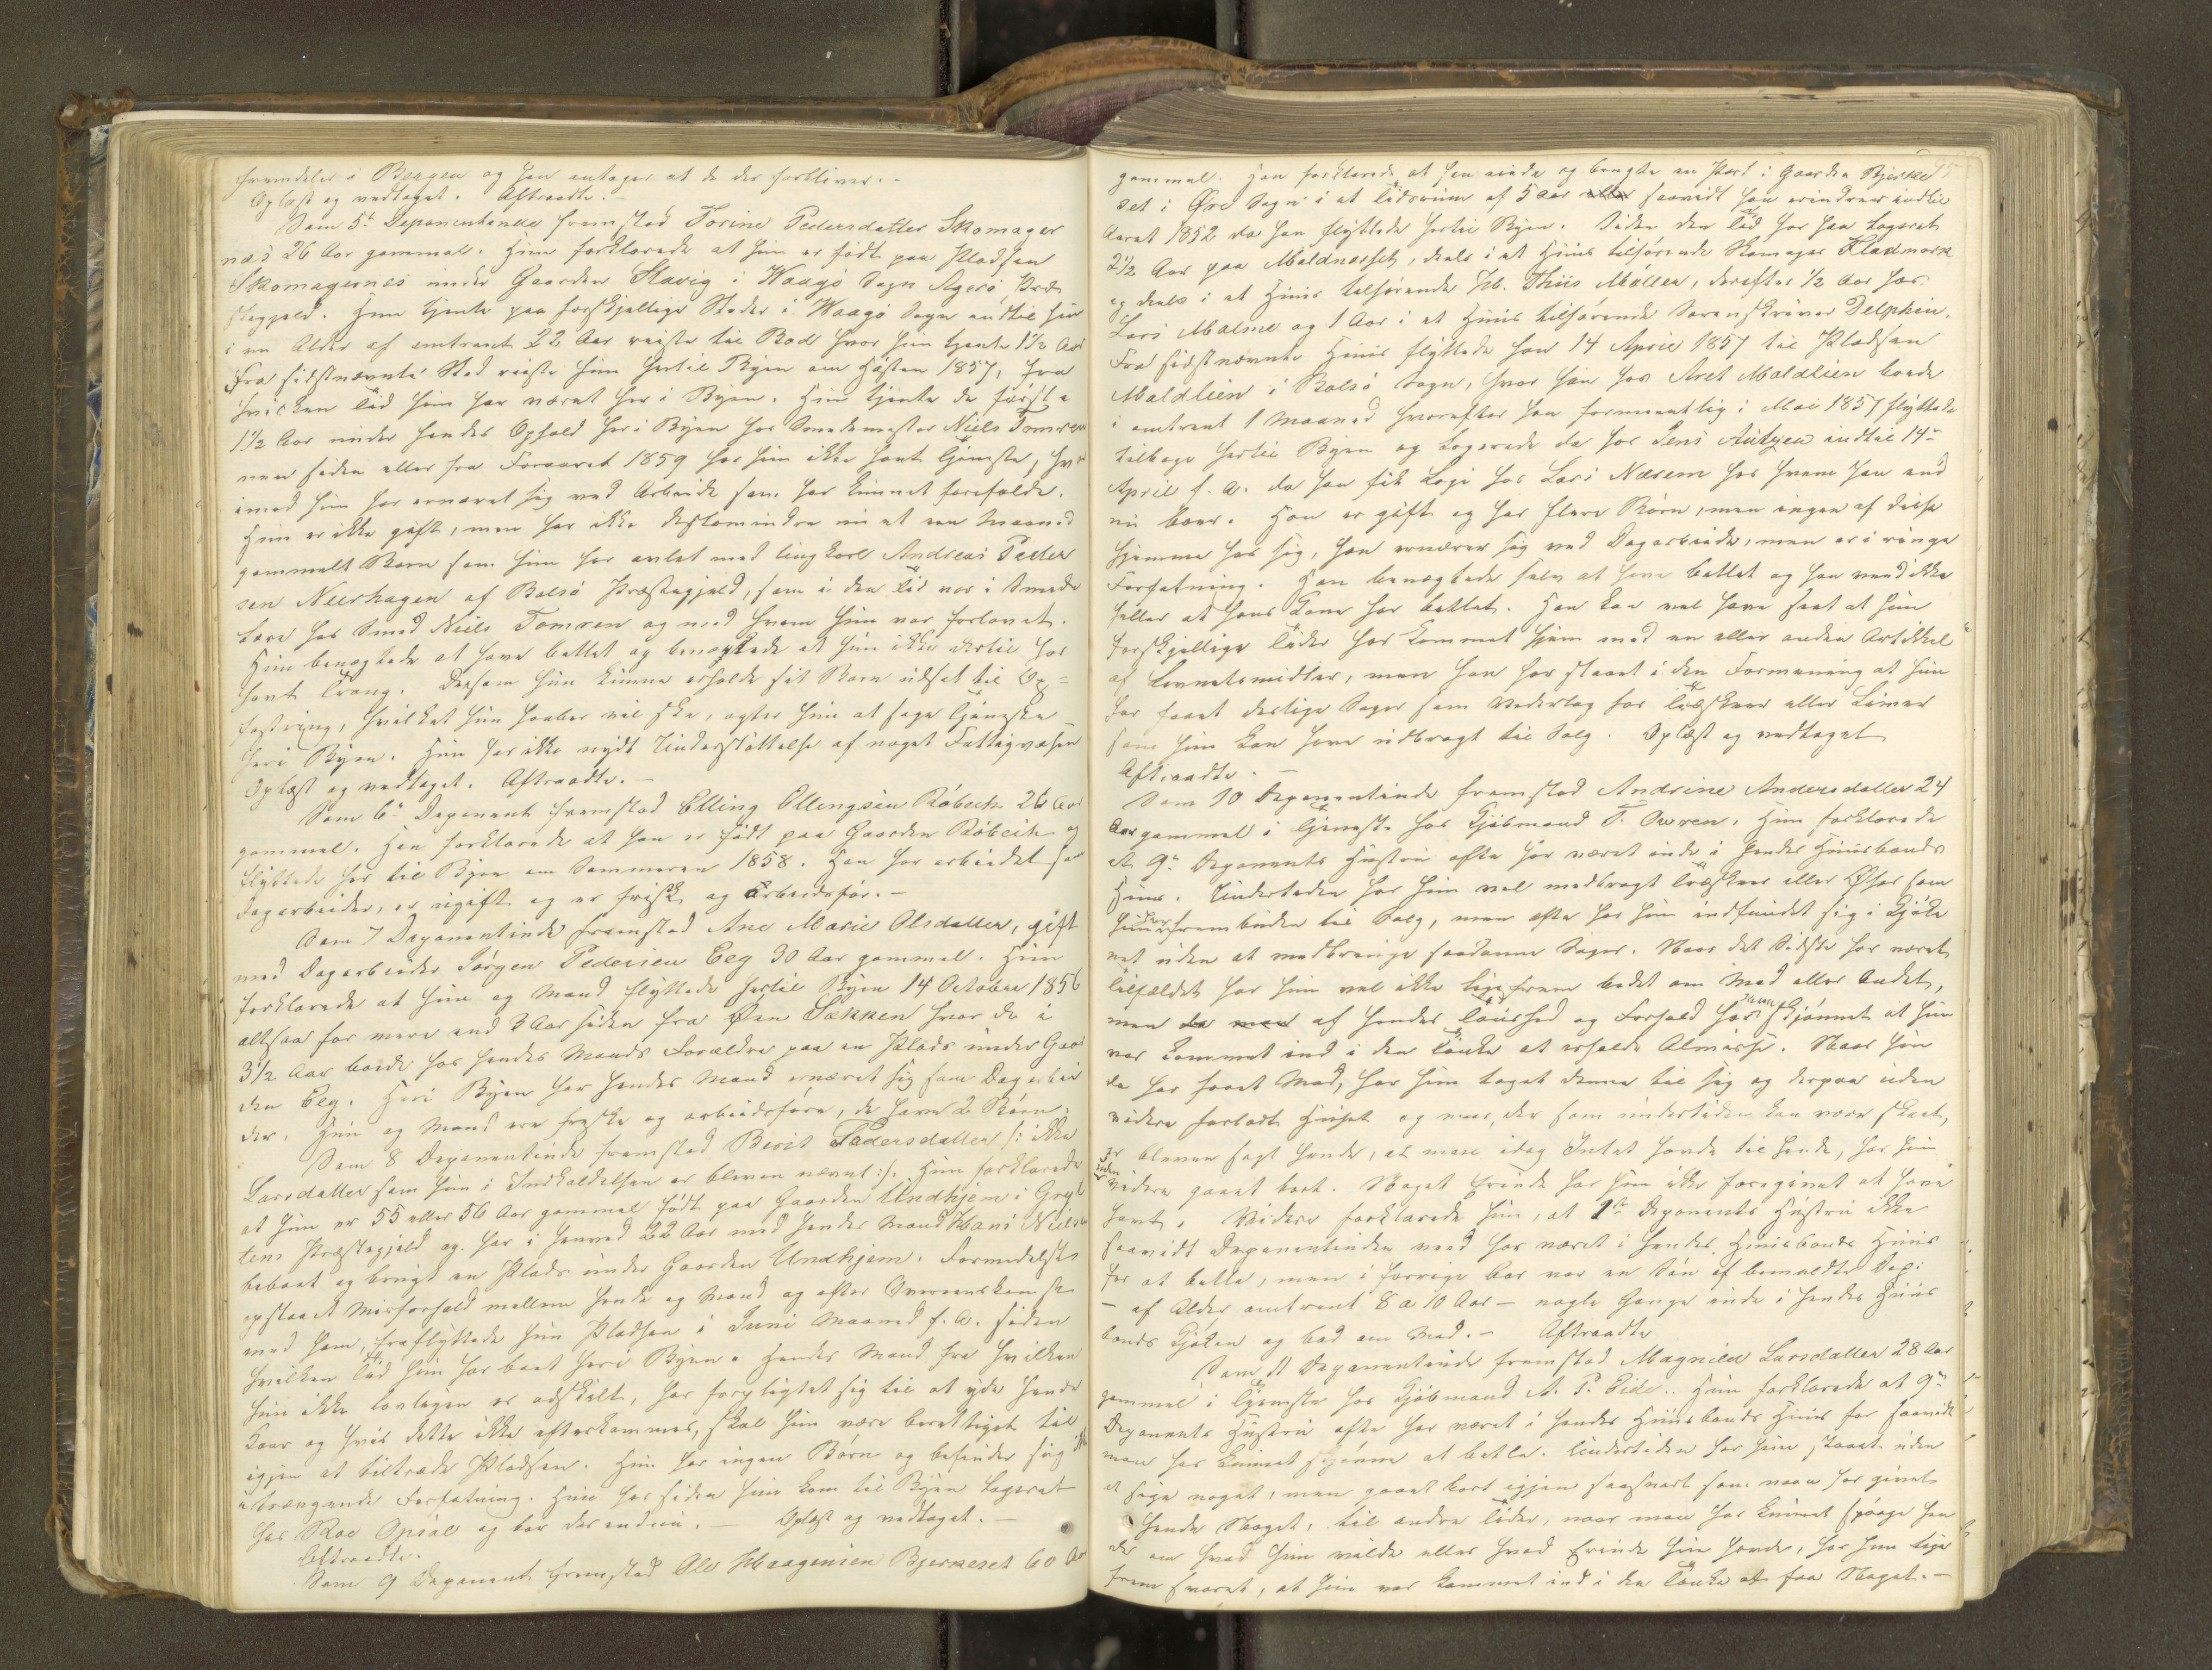 fremdeles i Bergen og han antager at de der forbliver. -
Oplæst og vedtaget. Aftraadte. -
Som 5te Deponentinde fremstod Torine Pedersdatter Skomager
næs 26 Aar gammel. Hun forklarede at hun er født paa Pladsen
Skomagernæs under Gaarden Stavig i Waagø Sogn Agerø Præ
stegjeld. Hun tjente paa forskjellige Steder i Waagø Sogn indtil hun
i en Alder af omtrent 22 Aar reiste til Bod hvor hun tjente 1½ Aar
Fra sidstnævnte Sted reiste hun hertil Byen om Høsten 1857, fra
hvilken Tid hun har været her i Byen. Hun tjente de første
1½ Aar under hendes Ophold her i Byen hos Smedemester Niels Tomren
men siden eller fra Foraaret 1859 har hun ikke havt Tjeneste, hvor
imod hun har ernæret sig ved Arbeide som har kunnet forefalde.
Hun er ikke gift, men har ikke destomindre nu et en Maaned
gammelt Barn som hun har avlet med Ungkarl Andreas Peder
sen Neerhagen af Bolsø Præstegjeld, som i den Tid var i Smede
lære hos Smed Niels Tomren og med hvem hun var forlovet.
Hun benægtede at have betlet og benægtede at hun ikke dertil har
havt Trang. Dersom hun kunne erholde sit Barn udsat til Op=
fostring, hvilket hun haaber vil ske, agter hun at søge Tjeneste
heri Byen. Hun har ikke nydt Understøttelse af noget Fattigvæsen
Oplæst og vedtaget. Aftraadte. -
Som 6te Deponent fremstod Elling Ellingsen Røbech 26 Aar
gammel. Han forklarede at han er født paa Gaarden Røbech og
flyttede her til Byen om Sommeren 1858. Han har arbeidet som
Dagarbeider, er ugift og er frisk og arbeidsfør. -
Som 7 Deponentinde fremstod Ane Marie Olsdatter, gift
med Dagarbeider Jørgen Pedersen Eeg 30 Aar gammel. Hun
forklarede at hun og Mand flyttede hertil Byen 14 October 1856
altsaa for mere end 3 Aar siden fra Øen Sækken hvor de i
3½ Aar boede hos hendes Mands Forældre paa en Plads under Gaar
den Eeg. Heri Byen har hendes Mand ernæret sig som Dagarbei
der. Hun og Mand ere friske og arbeidsføre, de have 2 Børn.
Som 8 Deponentinde fremstod Berit Pedersdatter /: ikke
Larsdatter som hun i Indkaldelsen er bleven nævnt :/. Hun forklarede
at hun er 55 eller 56 Aar gammel født paa Gaarden Undhjem i Gryt
tens Præstegjeld og har i henved 22 Aar med hendes Mand Hans Nielsen
beboet og brugt en Plads under Gaarden Undhjem. Formedelst
opstaaet Misforhold mellem hende og Mand og efter Overenskomst
med ham, fraflyttede hun Pladsen i Juni Maaned f. A. siden
hvilken Tid hun har boet heri Byen. Hendes Mand fra hvilken
hun ikke lovligen er adskilt, har forpligtet sig til at yde hende
Kaar og hvis dette ikke efterkommes, skal hun være berettiget til
igjen at tiltræde Pladsen. Hun har ingen Børn og befinder sig ikke
i trængende Forfatning. Hun har siden hun kom til Byen logeret
hos Roe Opsal og bor der endnu. - Oplæst og vedtaget. -
Aftraadte.
Som 9 Deponent fremstod Ole Haagensen Bjerkeset 60 Aar
95
gammel. Han forklarede at han eiede og brugte en Part i Gaarden Bjerke
set i Øre Sogn i et Tidsrum af 5 Aar saavidt han erindrer indtil
Aaret 1852 da han flyttede hertil Byen. Siden den Tid har han logeret
2½ Aar paa Moldnæsset, deels i et Huus tilhørende Skomager Kladmark
og deels i et Huus tilhørende Th. Thiis Møller, derefter ½ Aar hos
Lars Malme og 1 Aar i et Huus tilhørende Sorenskriver Delphin.
Fra sidstnævnte Huus flyttede han 14 April 1857 til Pladsen
Moldelien i Bolsø Sogn, hvor han hos Aret Moldelien boede
i omtrent 1 Maaned hvorefter han formeentlig i Mai 1857 flyttede
tilbage hertil Byen og logerede da hos Jens Autzen indtil 14de
April f. A. da han fik Logi hos Lars Næsem hos hvem han end
nu boer. Han er gift og har flere Børn, men ingen af disse
hjemme hos sig, han ernærer sig ved Dagarbeide, men er i ringe
Forfatning. Han benægtede selv at have betlet og han veed ikke
heller at hans Kone har betlet. Han kan vel have seet at hun
forskjellige Tider har kommet hjem med en eller anden Artikkel
af Levnetsmidler, men han har staaet i den Formening at hun
har faaet deslige Sager som Vederlag for Træskeer eller Limer
som hun kan have udbragt til Salg. Oplæst og vedtaget
Aftraadte. -
Som 10 Deponentinde fremstod Andrine Andersdatter 24
Aar gammel i Tjeneste hos Kjøbmand P. Owren. Hun forklarede
at 9de Deponents Hustru ofte har været inde i hendes Huusbonds
Huus. Undertiden har hun vel medbragt Træskeer eller Øser som
hun har frembuden til Salg, men ofte har hun indfundet sig i Kjøke
net uden at medbringe saadanne Sager. Naar det Sidste har været
Tilfældet har hun vel ikke ligefrem bedet om Mad eller Andet,
men af hendes Taushed og Forhold har man skjønnet at hun
var kommet ind i den Tanke at erholde Almisse. Naar hun
da har faaet Mad, har hun taget denne til sig og derpaa uden
videre forladt Huset og naar, der som undertiden kan være skeet,
er bleven sagt hende, at man idag Intet havde til hende, har hun
uden videre gaaet bort. Noget Erinde har hun ikke foregivet at have
havt. Videre forklarede hun, at 1ste Deponents Hustru ikke
saavidt Deponentinden veed har været i hendes Huusbonds Huus
for at betle, men i forrige Aar var en Søn af bemeldte Dep:
- af Alder omtrent 8 a 10 Aar - nogle Gange inde i hendes Huus
bonds Kjøken og bad om Mad. - Aftraadte
Som 11 Deponentinde fremstod Magnild Larsdatter 28 Aar
gammel i Tjeneste hos Kjøbmand A. P. Eide. Hun forklarede at 9de
Deponents Hustru ofte har været i hendes Huusbonds Huus for saavidt
man har kunnet skjønne at betle. Undertiden har hun staaet uden
at sige noget, men gaaet bort igjen saasnart som naar har givet
hende Noget, til andre Tider, naar man har kunnet spørge hen
de om hvad hun vilde eller hvad Erinde hun havde, har hun lige
frem svaret, at hun var kommet ind i den Tanke at faa Noget. -